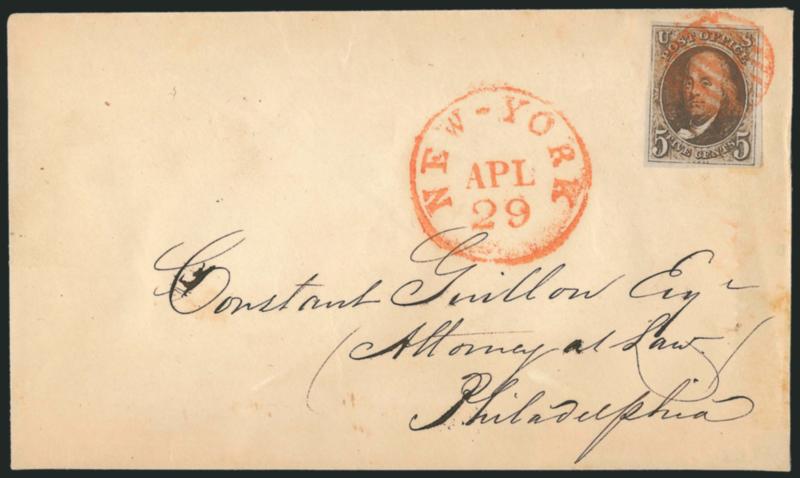 U S
POST OFFICE
FIVE CENTS
5 5
NEW-YORK
APL
29
Constant Guillou Esqr
(Attorney at Law.)
Philadelphia